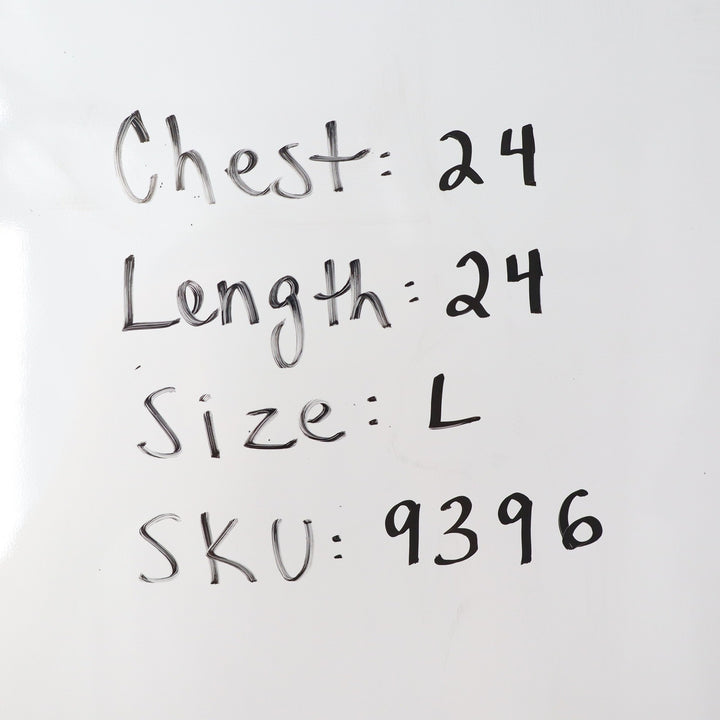 Chest: 24
Length: 24
Size: L
SKU: 9396